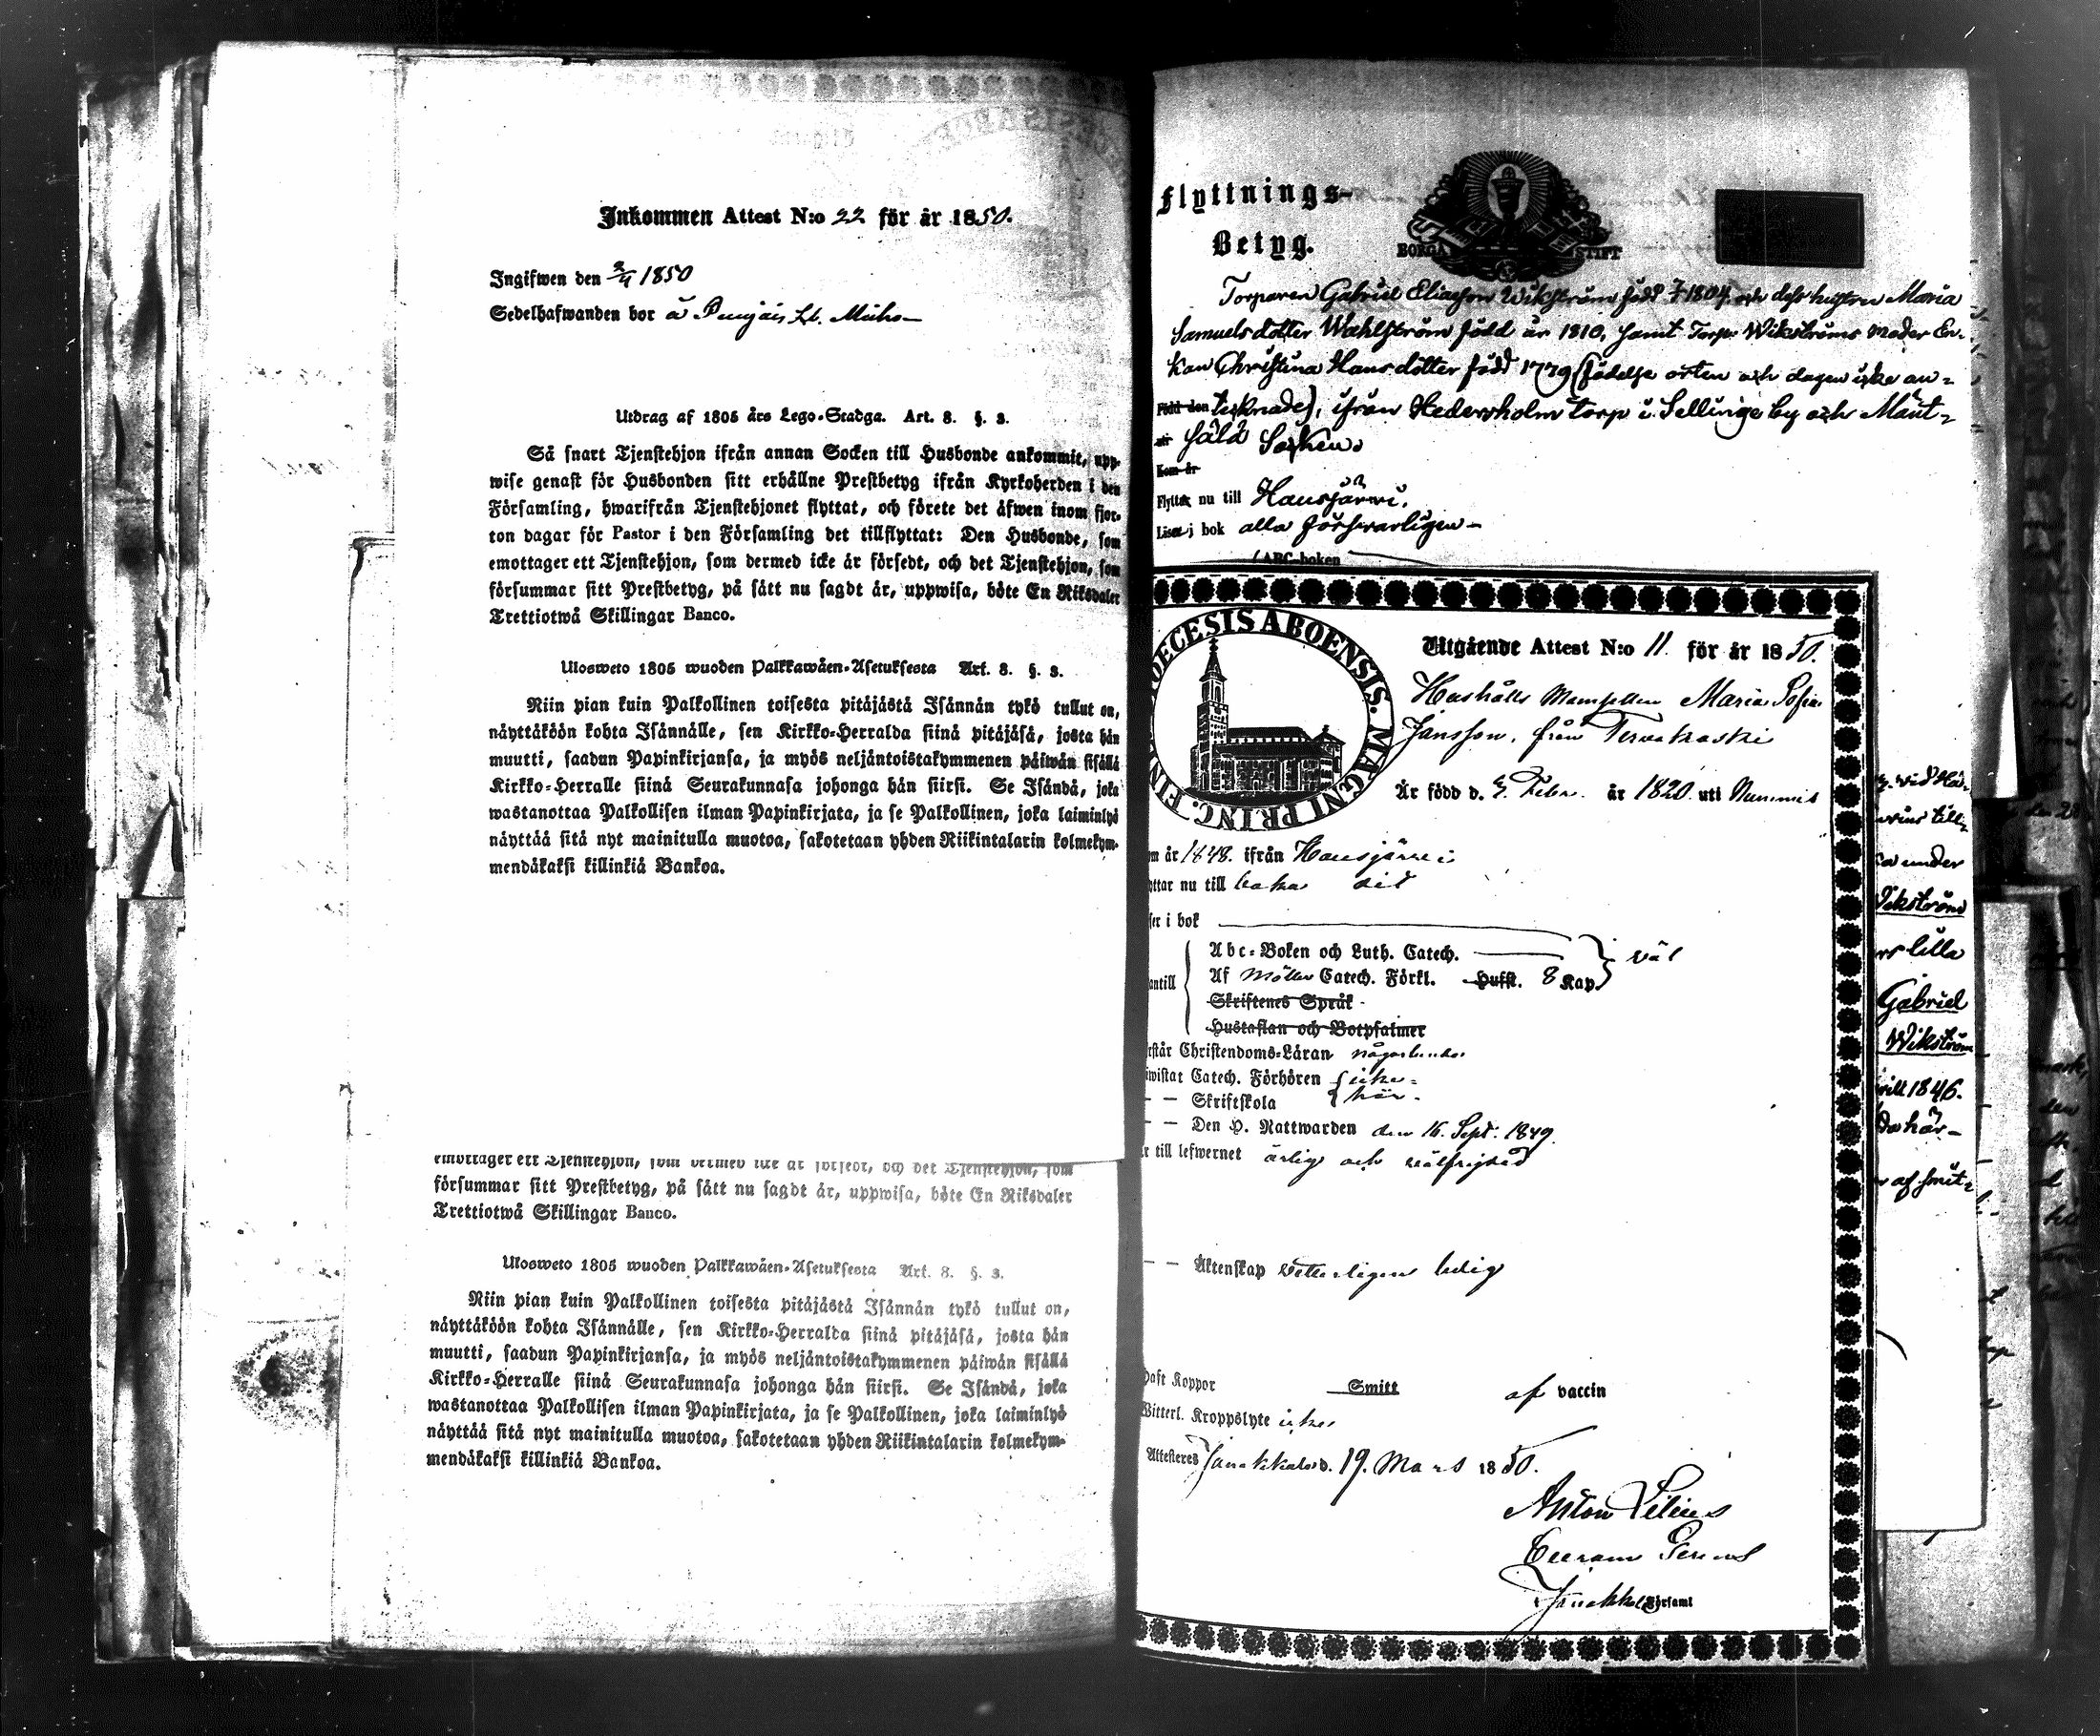 Inkommen Attest N:o 22 för år 1850.
Ingifwen den 3/4 1850
Sedelhafwanden bor å
Utdrag af 1805 års Lego-Stadga. Art. 8. §. 3.
Så snart Tjenstehjon ifrån annan Socken till Husbonde ankommit, upp-
wise genast för Husbonden sitt erhållne Prestbetyg ifrån Kyrkoherden i den
Församling, hwarifrån Tjenstehjonet flyttat, och förete det åfwen inom fjor-
ton dagar för Pastor i den Församling det tillflyttat: Den Husbonde, som
emottager ett Tjenstehjon, som dermed icke är försedt, och det Tjenstehjon, som
försummar sitt Prestbetyg, på sätt nu sagdt är, uppwisa, böte En Riksdaler
Trettiotwå Skillingar Banco.
Ulosweto 1805 wuoden Palkkawäen-Asetuksesta Art. 8. §. 3.
Niin pian kuin Palkollinen toisesta pitäjästä Isännän tykö tullut on,
näyttäköön kohta Isännälle, sen Kirkko-Herralda siinä pitäjäsä, josta hän
muutti, saadun Papinkirjansa, ja myös neljäntoistakymmenen päiwän sisällä
Kirkko-Herralle siinä Seurakunnasa johonga hän siirsi. Se Isändä, joka
wastanottaa Palkollisen ilman Papinkirjata, ja se Palkollinen, joka laiminlyö
näyttää sitä nyt mainitulla muotoa, sakotetaan yhden Riikintalarin kolmekym-
mendäkaksi killinkiä Bankoa.
emottager ett Tjenstehjon, som dermed icke är försedt, och det Tjenstehjon, som
försummar sitt Prestbetyg, på sätt nu sagdt är, uppwisa, böte En Riksdaler
Trettiotwå Skillingar Banco.
Ulosweto 1805 wuoden Palkkawäen-Asetuksesta Art. 8. §. 3.
Niin pian kuin Palkollinen toisesta pitäjästä Isännän tykö tullut on,
näyttäköön kohta Isännälle, sen Kirkko-Herralda siinä pitäjäsä, josta hän
muutti, saadun Papinkirjansa, ja myös neljäntoistakymmenen päiwän sisällä
Kirkko-Herralle siinä Seurakunnasa johonga hän siirsi. Se Isändä, joka
wastanottaa Palkollisen ilman Papinkirjata, ja se Palkollinen, joka laiminlyö
näyttää sitä nyt mainitulla muotoa, sakotetaan yhden Riikintalarin kolmekym-
mendäkaksi killinkiä Bankoa.
Flyttnings-
Betyg.
BORGÅ STIFT
Torparen Gabriel Eliasson Wikström född 1804, och dess hustru Maria
Samuelsdotter Wahlström född år 1810, samt Torp. Wikströms moder En-
kan Christina Hansdotter född 1779 (födelse orten och dagen icke an-
Född den tecknade), ifrån Hedersholm torp i Sellinge by och Mänt-
sälä Socken.
Kom år
Flyttar nu till Hausjärwi.
Läser i bok alla försvarligen
ABC-boken
DIOECESIS ABOENSIS. MAGNI PRINC.
Utgående Attest N:o 11 för år 1850.
Hushålls Mamsellen Maria Sofia
Jansson, från Terwakoski
Är född d. Febr. år 1820 uti Nummis
om år 1848. ifrån Hausjärwi
yttar nu till baka dit
ser i bok
antill
Abc-Boken och Luth. Catech.
Af Möller Catech. Förkl. Husst. 8 Kap väl
Skriftenes Språk
Hustaflan och Botpsalmer
rstår Christendoms-Läran någorlunda
iwistat Catech. Förhören icke
— — Skriftskola här
— — Den H. Nattwarden den 16. Sept. 1849
r till lefwernet ärlig och välfrejdad
— — Äktenskap vetterligen ledig
Haft Koppor Smitt af vaccin
Witterl. Kroppslyte icke
Attesteres Janakkala d. 19. Mars 1850.
Anton
Janakkala Församl
wid Hä-
under
Wikström
lilla
Gabriel
Wikström
1846.
här
af smit-